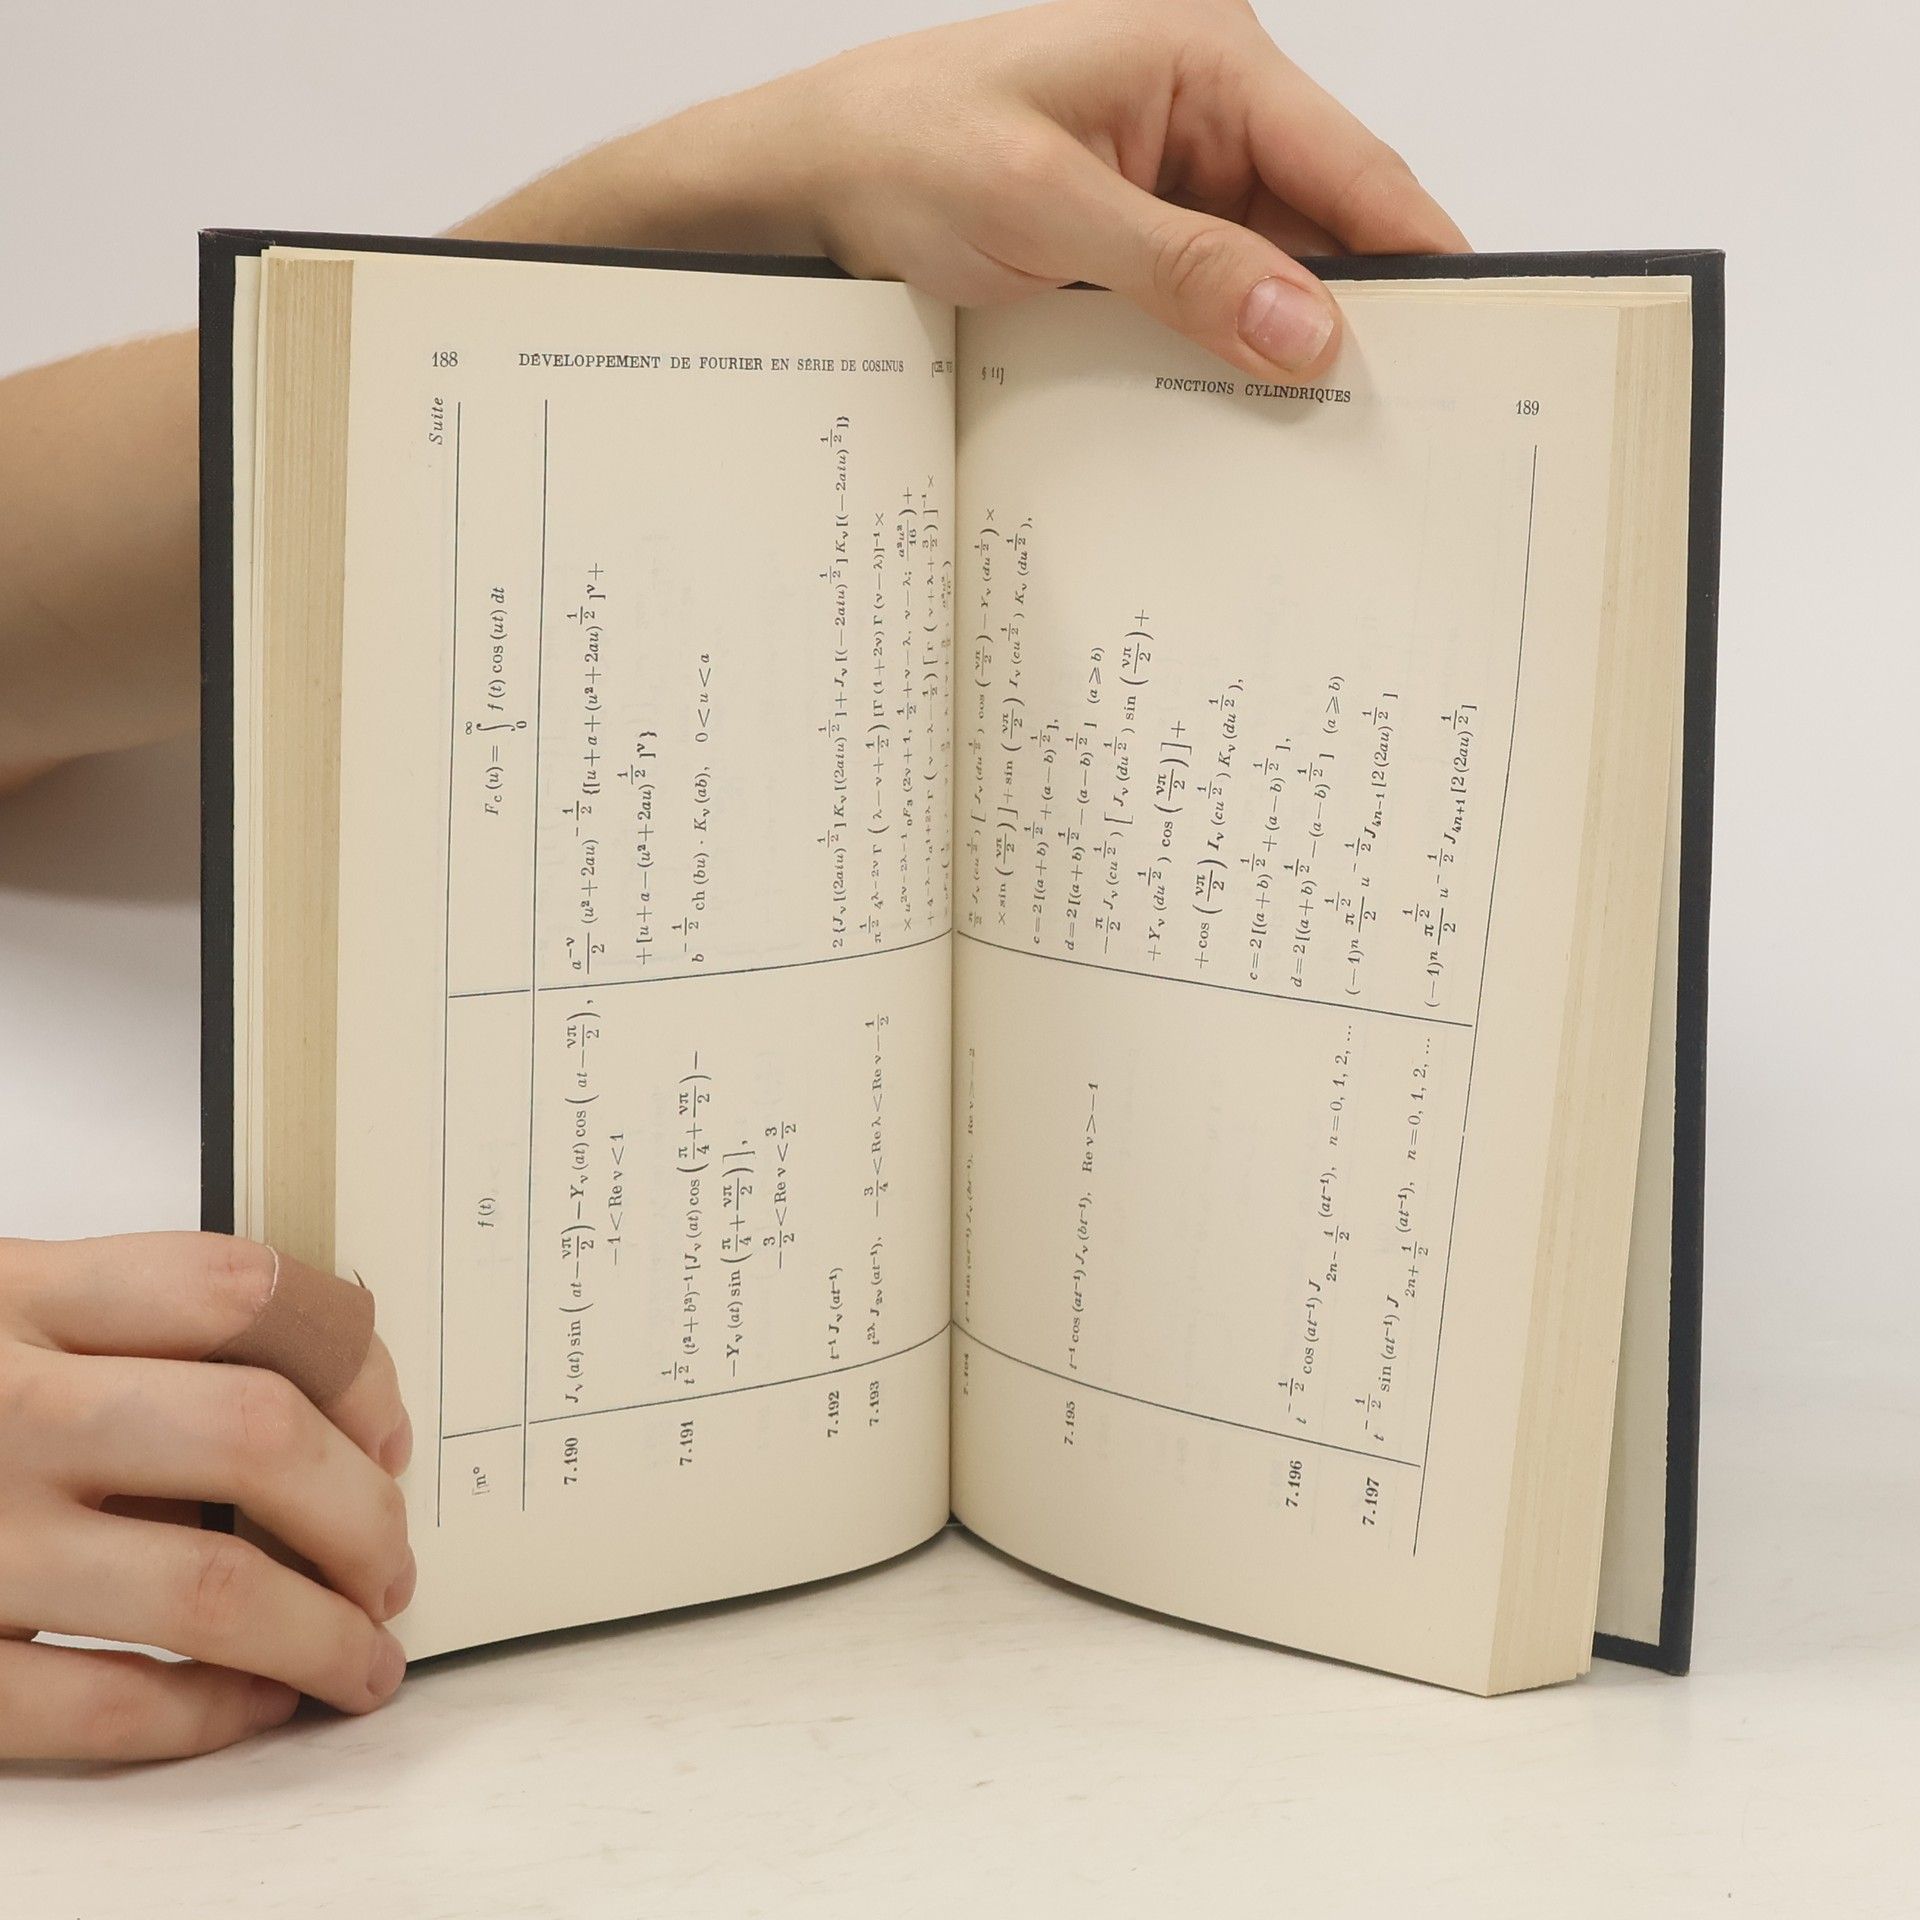 188 DÉVELOPPEMENT DE FOURIER EN SÉRIE DE COSINUS [CH. VII
Suite
n° f(t) F_c(u) = ∫_0^∞ f(t) cos(ut) dt
7.190 J_ν(at) sin(at − νπ/2) − Y_ν(at) cos(at − νπ/2), a^{−ν}/2 (u² + 2au)^{−1/2} {[u + a + (u² + 2au)^{1/2}]^ν +
−1 < Re ν < 1 + [u + a − (u² + 2au)^{1/2}]^ν}
7.191 t^{1/2} (t² + b²)^{−1} [J_ν(at) cos(π/4 + νπ/2) − b^{−1/2} ch(bu) · K_ν(ab), 0 < u < a
− Y_ν(at) sin(π/4 + νπ/2)],
−3/2 < Re ν < 3/2
7.192 t^{−1} J_ν(at^{−1}) 2{J_ν[(2aiu)^{1/2}] K_ν[(2aiu)^{1/2}] + J_ν[(−2aiu)^{1/2}] K_ν[(−2aiu)^{1/2}]}
7.193 t^{2λ} J_{2ν}(at^{−1}), −3/4 < Re λ < Re ν − 1/2 π^{1/2} 4^{λ−2ν} Γ(λ − ν + 1/2) [Γ(1 + 2ν) Γ(ν − λ)]^{−1} ×
× u^{2ν−2λ−1} ₀F₃(2ν + 1, 1/2 + ν − λ, ν − λ; a²u²/16) +
+ 4^{−λ−1} a^{1+2λ} Γ(ν − λ − 1/2) [Γ(ν + λ + 3/2)]^{−1} ×
§ 11] FONCTIONS CYLINDRIQUES 189
7.194 t^{−1} sin(at^{−1}) J_ν(bt^{−1}), Re ν > −2 π/2 J_ν(cu^{1/2}) [J_ν(du^{1/2}) cos(νπ/2) − Y_ν(du^{1/2}) ×
× sin(νπ/2)] + sin(νπ/2) I_ν(cu^{1/2}) K_ν(du^{1/2}),
c = 2[(a + b)^{1/2} + (a − b)^{1/2}],
d = 2[(a + b)^{1/2} − (a − b)^{1/2}] (a ⩾ b)
7.195 t^{−1} cos(at^{−1}) J_ν(bt^{−1}), Re ν > −1 −π/2 J_ν(cu^{1/2}) [J_ν(du^{1/2}) sin(νπ/2) +
+ Y_ν(du^{1/2}) cos(νπ/2)] +
+ cos(νπ/2) I_ν(cu^{1/2}) K_ν(du^{1/2}),
c = 2[(a + b)^{1/2} + (a − b)^{1/2}],
d = 2[(a + b)^{1/2} − (a − b)^{1/2}] (a ⩾ b)
7.196 t^{−1/2} cos(at^{−1}) J_{2n−1/2}(at^{−1}), n = 0, 1, 2, ... (−1)^n π^{1/2}/2 u^{−1/2} J_{4n−1}[2(2au)^{1/2}]
7.197 t^{−1/2} sin(at^{−1}) J_{2n+1/2}(at^{−1}), n = 0, 1, 2, ... (−1)^n π^{1/2}/2 u^{−1/2} J_{4n+1}[2(2au)^{1/2}]